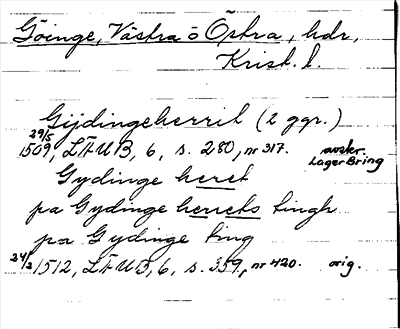 Göinge, Västra o Östra, hdr,
Krist. l.
Gijdingeherrit (2 ggr.)
29/5 1509, LÄUB, 6, s. 280, nr 317. avskr. LagerBring
Gydinge heret
pa Gydinge herrets tingh
pa Gydinge ting
24/2 1512, LÄUB, 6, s. 359, nr 420. orig.